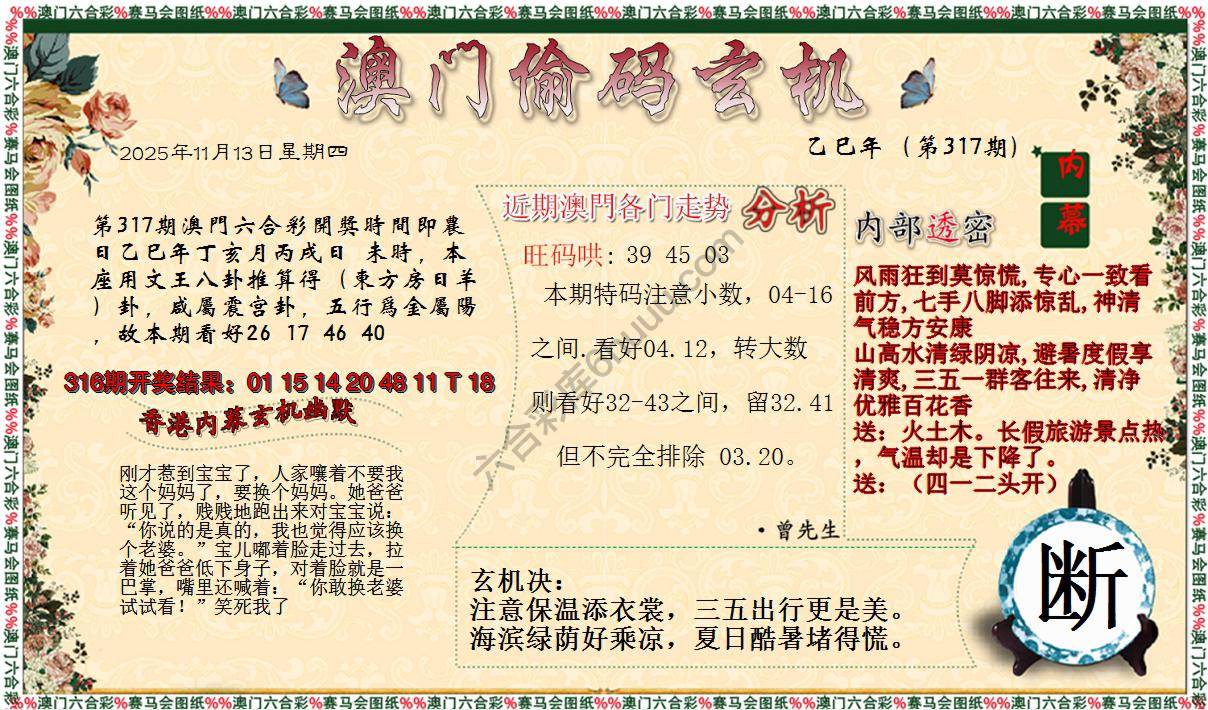 %%澳门六合彩%赛马会图纸%%澳门六合彩%赛马会图纸%%澳门六合彩%赛马会图纸%%澳门六合彩%赛马会图纸%%澳门六合彩%赛马会图纸%%澳门六合彩%赛马会图纸%
澳门偷码玄机
2025年11月13日星期四
乙巳年（第317期）
内幕
第317期澳門六合彩開獎時間即農
日乙巳年丁亥月丙戌日 未時，本
座用文王八卦推算得（東方房日羊
）卦，咸屬震宫卦，五行爲金屬陽
，故本期看好26 17 46 40
316期开奖结果：01 15 14 20 48 11 T 18
香港内幕玄机幽默
刚才惹到宝宝了，人家嚷着不要我
这个妈妈了，要换个妈妈。她爸爸
听见了，贱贱地跑出来对宝宝说：
“你说的是真的，我也觉得应该换
个老婆。”宝儿嘟着脸走过去，拉
着她爸爸低下身子，对着脸就是一
巴掌，嘴里还喊着：“你敢换老婆
试试看！”笑死我了
近期澳門各门走势 分析
旺码哄: 39 45 03
本期特码注意小数，04-16
之间.看好04.12，转大数
则看好32-43之间，留32.41
但不完全排除 03.20。
·曾先生
内部透密
风雨狂到莫惊慌,专心一致看
前方,七手八脚添惊乱,神清
气稳方安康
山高水清绿阴凉,避暑度假享
清爽,三五一群客往来,清净
优雅百花香
送：火土木。长假旅游景点热
，气温却是下降了。
送：（四一二头开）
玄机决：
注意保温添衣裳，三五出行更是美。
海滨绿荫好乘凉，夏日酷暑堵得慌。
断
%%澳门六合彩%赛马会图纸%%澳门六合彩%赛马会图纸%%澳门六合彩%赛马会图纸%%澳门六合彩%赛马会图纸%%澳门六合彩%赛马会图纸%%澳门六合彩%赛马会图纸%